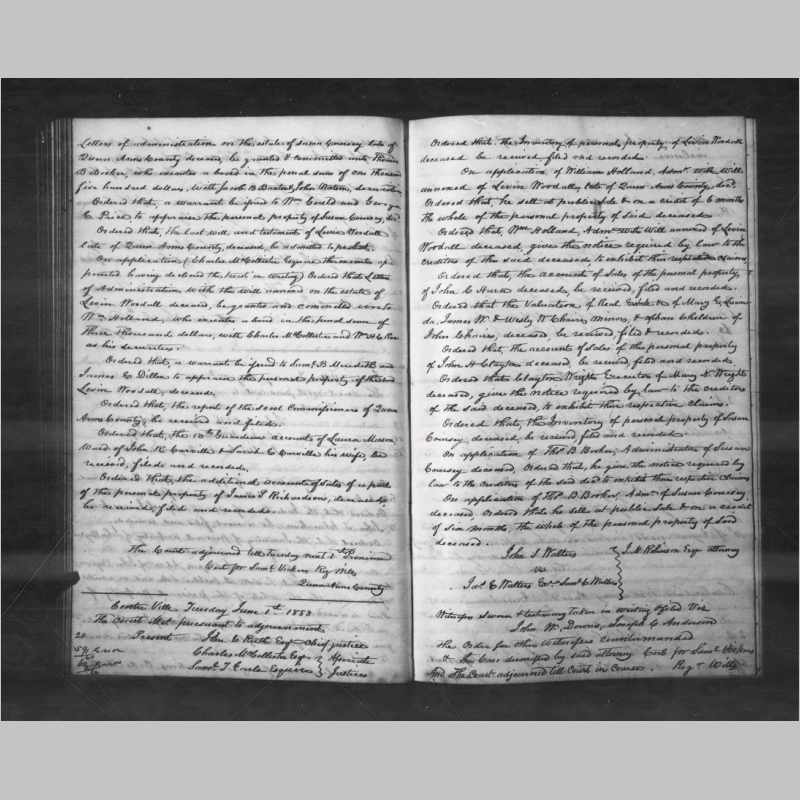 Letters of administration on the estate of Susan Coursey late of
Queen Anns County deceased, be granted & committed unto Thomas
B Booker, who executes a bond in the penal sum of one thousand
five hundred dollars, with Jacob B and John Watson, securities
Ordered, that a warrant be issued to Wm and George
C Price to appraise the personal property of Susan Coursey, decd
Ordered that, the last will and testament of Levin Woodall
late of Queen Anns County, deceased, be admitted to probat.
On application (Charles McCollister Esquire the executor ap
pointed having declined the trust in writing) Ordered that Letters
of Administration with the will annexed on the estate of
Levin Woodall deceased, be granted and committed unto
Wm Holland, who executes a bond in the penal sum of
Three thousand dollars, with Charles McCollister and Wm H C
as his securities.
Ordered that, a warrant be issued to Saml B Meredith and
James C Dillon to appraise the personal property of the said
Levin Woodall, deceased.
Ordered that, the report of the School Commissioners of Queen
Anns County, be received and filed.
Ordered that, the Guardian accounts of Laura Mason
Ward of John R Carville & Sarah C Carville his wife, be
received, filed and recorded.
Ordered that, the additional account of sales of a part
of the personal property of James T Richardson, deceased,
be received, filed and recorded.
The Court adjourned till Tuesday next 1st Proximo
Test for Saml Vickers Reg Wills
Queen Anns County
Centre Ville Tuesday June 1st 1852
The Court Met pursuant to adjournment.
Present John C Ruth Esqr Chief justice
Charles McCollister Esqr Associate
Saml T Earle Esquires Justices
Ordered that the Inventory of personal property of Levin Woodall
deceased be received filed and recorded.
On application of William Holland, Admr with will
annexed of Levin Woodall, late of Queen Anns County, decd.
Ordered that, he sell at public sale & on a credit of 6 months
the whole of the personal property of said deceased.
Ordered that, Wm Holland, Admr with Will annexed of Levin
Woodall deceased, gives the notice required by law to the
creditors of the said deceased to exhibit their respective claims
Ordered that, the account of Sales of the personal property,
of John C Hurtt deceased, be received, filed and recorded.
Ordered that the Valuation of Real Estate &c of Mary E, Lucin
da, James W. & Wesly W Chaires, Minors, & orphan Children of
John Chaires, deceased, be received, filed & recorded.
Ordered that, the account of Sales of the personal property
of John H Clayton deceased, be received, filed and recorded
Ordered that Clayton Wright Executor of Mary Wright
deceased, give the notice required by law to the creditors
of the said deceased to exhibit their respective claims.
Ordered that, the Inventory of personal property of Susan
Coursey, deceased, be received, filed and recorded.
On application of Thos B Booker, Administrator of Susan
Coursey, deceased, Ordered that, he give the notice required by
law to the creditors of the said decd to exhibit their respective claims
On application of Thos B Booker, Admr of Susan Coursey,
deceased, Ordered that he sell at public Sale & on a credit
of Six Months, the whole of the personal property of said
deceased.
John S Walters
vs
Jas C Walters Exr Saml C Walters
J M Robinson Esqr attorney
Witnesses Sworn & testimony taken in writing & filed Viz
John W. Downes, Joseph C Anderson
the Order for other Witnesses Countermanded
& the Case dismissed by said attorney Test for Saml Vickers
And The Court adjourned till Court in Course. Regr Wills